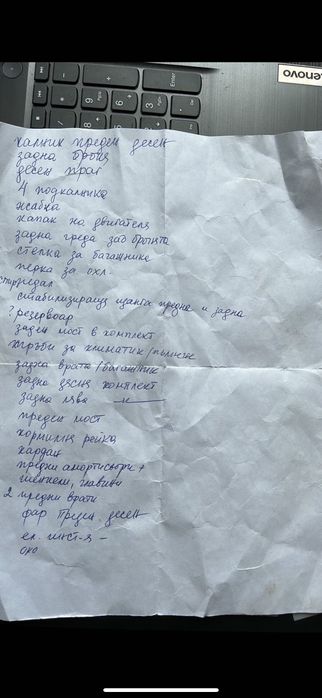 Lenovo
Enter
калник преден десен
задна броня
десен праг
4 подкалника
жабка
капак на двигателя
задна греда зад бронята
стелка за багажника
перка за охл.
педал
стабилизираща щанга предна и задна
? резервоар
заден мост в комплект
тръби за климатик / пълнене
задна врата / багажник
задна дясна комплект
задна лява — " —
преден мост
кормилна рейка
кардан
предни амортисьори +
шенкели, главини
2 предни врати
фар преден десен
ел. инст-я -
око